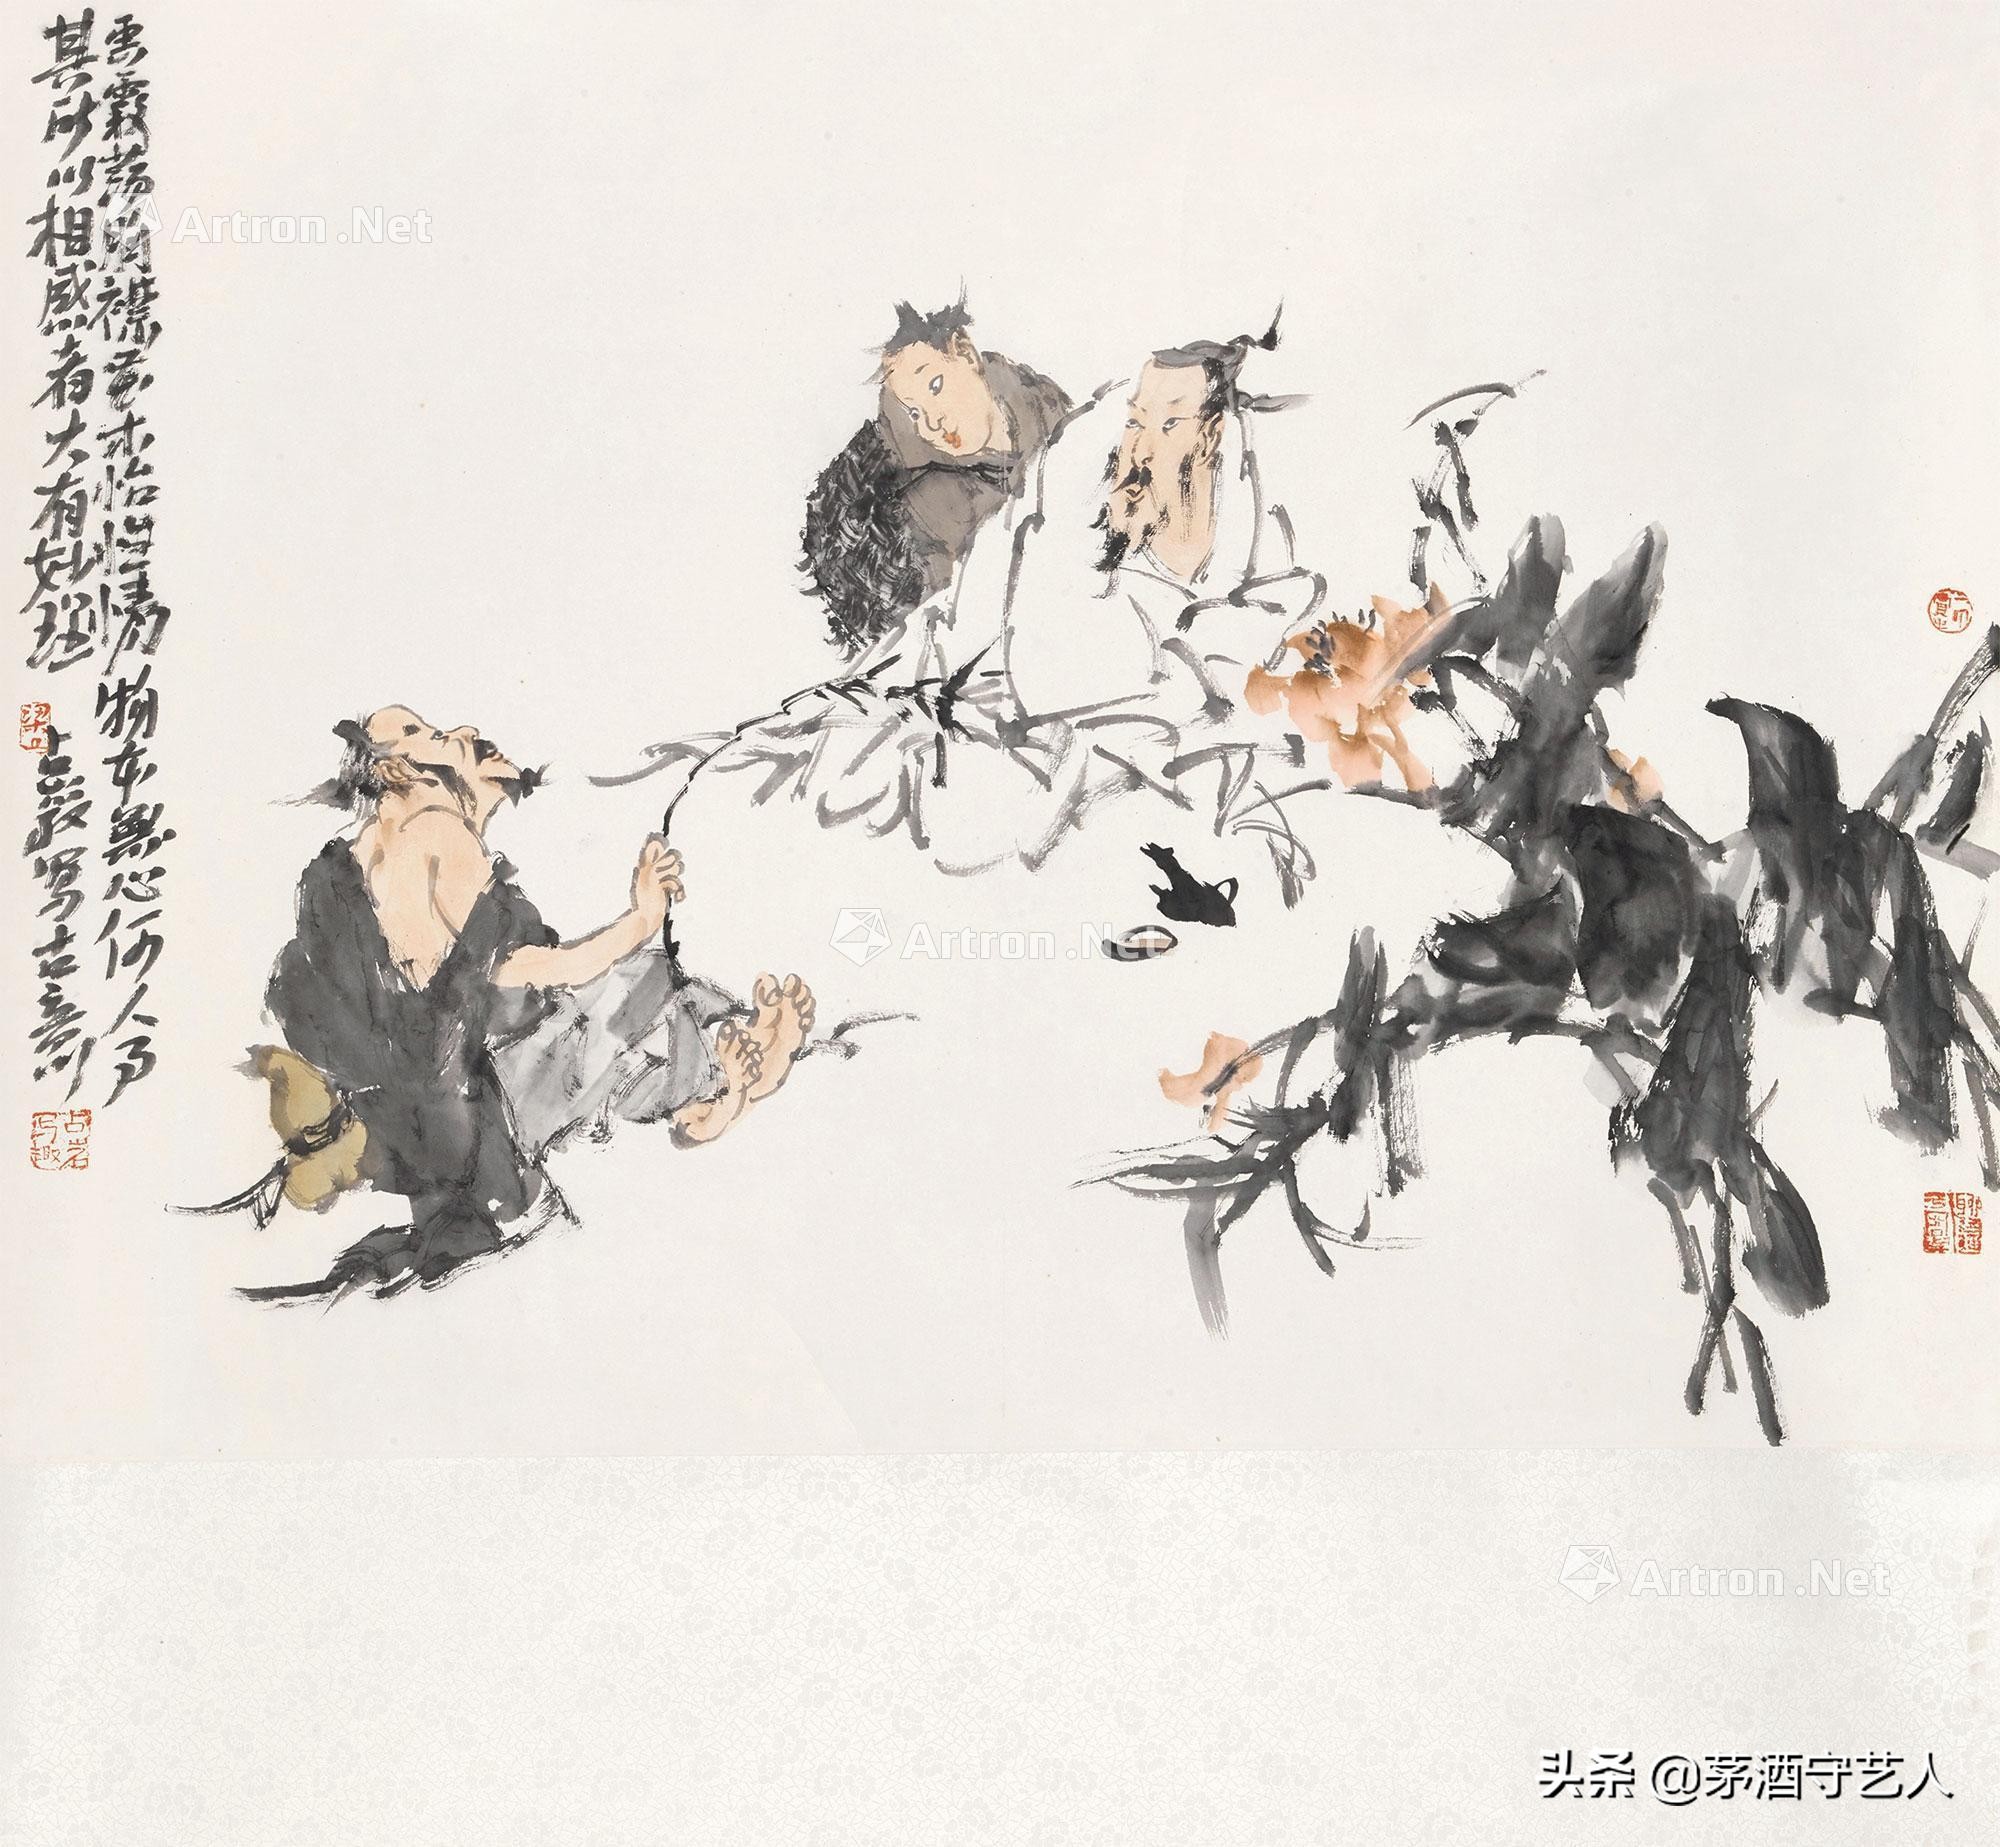 雲霧蕩胸襟花木怡性情物本無心何人為
其所以相感者大有妙理 占岩寫古意則
占岩
写趣
Artron.Net
Artron.Net
Artron.Net
头条 @茅酒守艺人